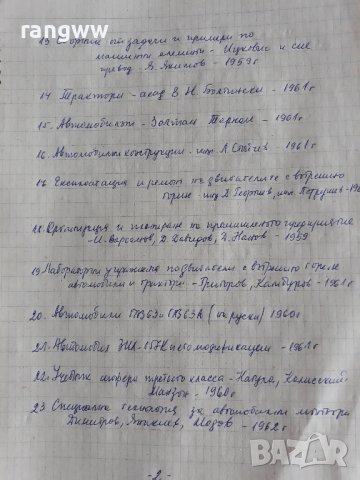 rangww
13 Сборник от задачи и примери по
машинни елементи - Ицкович и сие
превод - Я. Якимов - 1959г
14. Трактори - акад В. Н. Болтински - 1961г
15. Автомобилът - Золтан Терной - 1961г
16. Автомобилни конструкции - инж. А. - 1961г
17. Експлоатация и ремонт на двигателите с вътрешно
горене - инж Георгиев, инж. Петрушев - 196
18. Организация и планиране на промишленото предприятие
- И. Д. Давидов, Я. - 1959
19. Лабораторни упражнения по двигатели с вътрешно горене
автомобили и трактори - Григоров, Камбуров - 1961г
20. Автомобили ГАЗ63 и ГАЗ63А (на руски) 1960г
21. Автомобил ЗИЛ-157К и его модификации - 1961г
22. Учебник шофера третьего класса - Кагула, Каминский
- 1960г
23 Специална технология за автомобилни монтьори
Димитров, - 1962г
- 2 -
BAZAR
bg